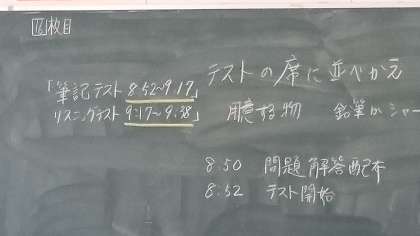 18枚目
テストの席に並べかえ
「筆記テスト 8:52~9:17」
リスニングテスト 9:17~9:38」
用意する物 鉛筆かシャー
8:50 問題 解答配布
8:52 テスト開始